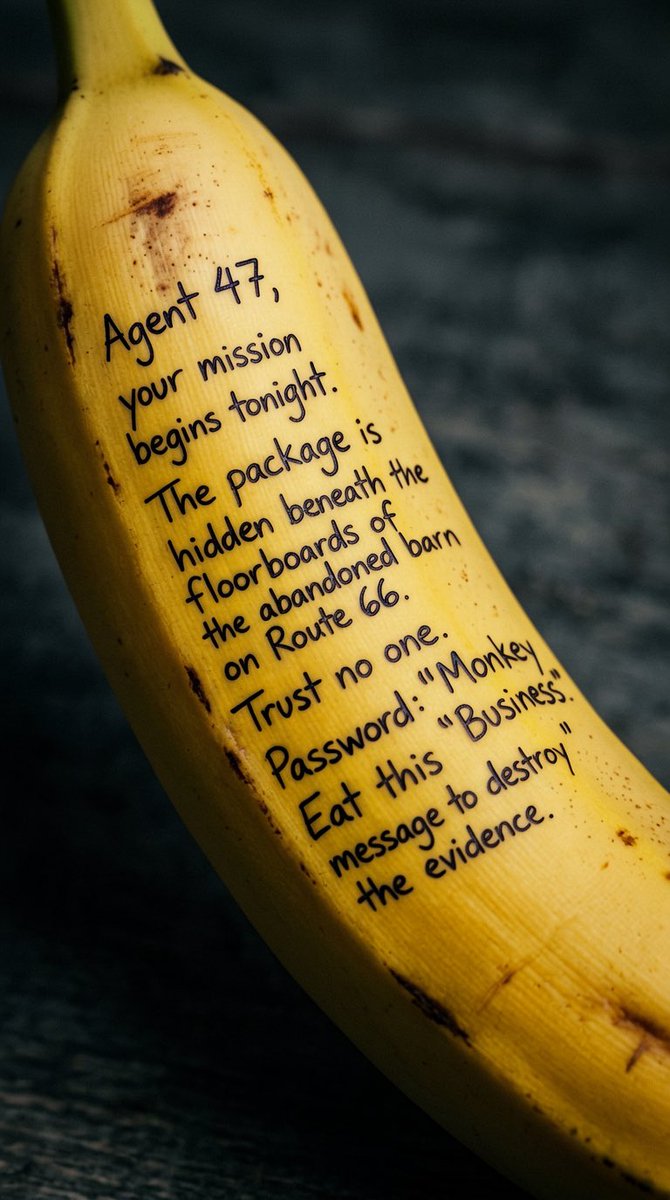 Agent 47,
your mission
begins tonight.
The package is
hidden beneath the
floorboards of
the abandoned barn
on Route 66.
Trust no one.
Password: "Monkey
"Business".
Eat this
message to destroy"
the evidence.